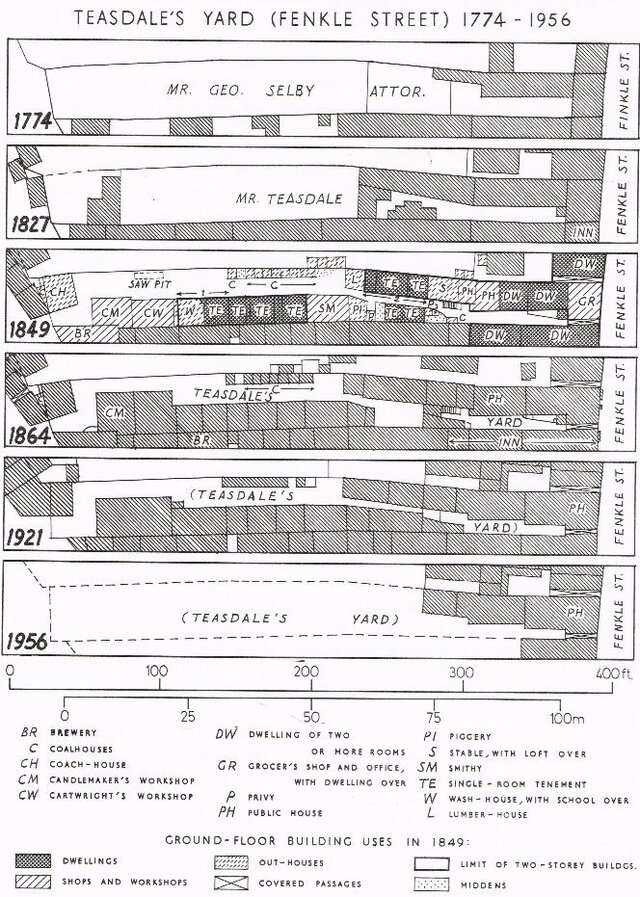 TEASDALE'S YARD (FENKLE STREET) 1774 - 1956
MR. GEO. SELBY ATTOR.
1774
FINKLE ST.
MR. TEASDALE
INN
1827
FENKLE ST.
SAW PIT
C C
DW
1 2
TE TE S PH PH DW DW GR
CM CW W TE TE TE TE SM PI P TE TE P C
BR DW DW
1849
FENKLE ST.
C
TEASDALE'S
CM PH
YARD
BR INN
1864
FENKLE ST.
(TEASDALE'S
PH
YARD)
1921
FENKLE ST.
(TEASDALE'S YARD)
PH
1956
FENKLE ST.
0 100 200 300 400 ft.
0 25 50 75 100m
BR BREWERY
C COALHOUSES
CH COACH-HOUSE
CM CANDLEMAKER'S WORKSHOP
CW CARTWRIGHT'S WORKSHOP
DW DWELLING OF TWO
OR MORE ROOMS
GR GROCER'S SHOP AND OFFICE,
WITH DWELLING OVER
P PRIVY
PH PUBLIC HOUSE
PI PIGGERY
S STABLE, WITH LOFT OVER
SM SMITHY
TE SINGLE-ROOM TENEMENT
W WASH-HOUSE, WITH SCHOOL OVER
L LUMBER-HOUSE
GROUND-FLOOR BUILDING USES IN 1849:
DWELLINGS
SHOPS AND WORKSHOPS
OUT-HOUSES
COVERED PASSAGES
LIMIT OF TWO-STOREY BUILDGS.
MIDDENS